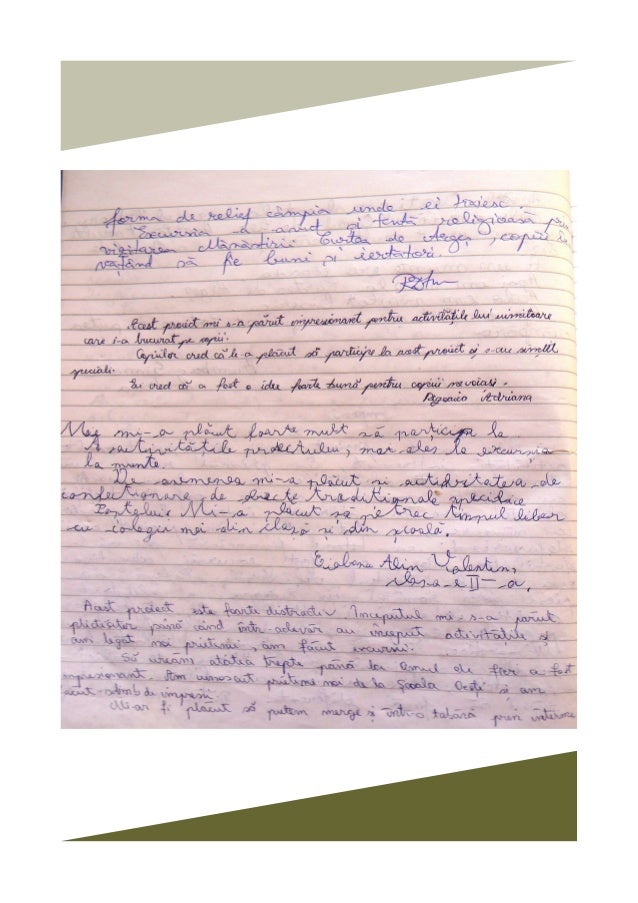 forma de relief câmpia unde ei trăiesc.
Excursia a avut și tentă religioasă prin
vizitarea Mănăstirii Curtea de Argeș, copiii în
vățând să fie buni și iertători.
Acest proiect mi s-a părut impresionant pentru activitățile lui uimitoare
care i-a bucurat pe copii.
Copiilor cred că le-a plăcut să participe la acest proiect și s-au simțit
speciali.
Eu cred că a fost o idee foarte bună pentru copiii nevoiași.
Adriana
mi-a plăcut foarte mult să particip la
activitățile proectului, mai ales la excursia
la munte.
De asemenea mi-a plăcut și activitatea de
confecționare de obiecte tradiționale specifice
Paștelui. Mi-a plăcut să petrec timpul liber
cu colegii mei din clasă și din școală.
Alin Valentin,
clasa a II-a.
Acest proiect este foarte distractiv. Începutul mi-s-a părut
plictisitor până când într-adevăr au început activitățile și
am legat noi prietenii, am făcut excursii.
Să urcăm atâtea trepte până la Omul de fier a fost
impresionant. Am cunoscut prieteni noi de la Școala Oești și am
făcut schimb de impresii.
Mi-ar fi plăcut să putem merge și într-o tabără prin